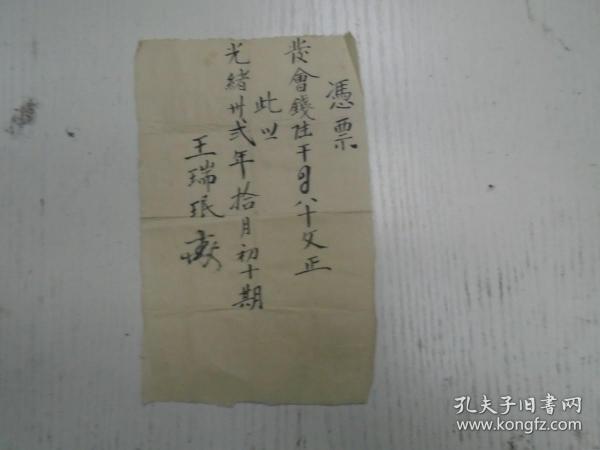 憑票
發會錢陸千八十文正
此以
光緒卅弍年拾月初十期
王瑞珉
孔夫子旧书网
www.kongfz.com